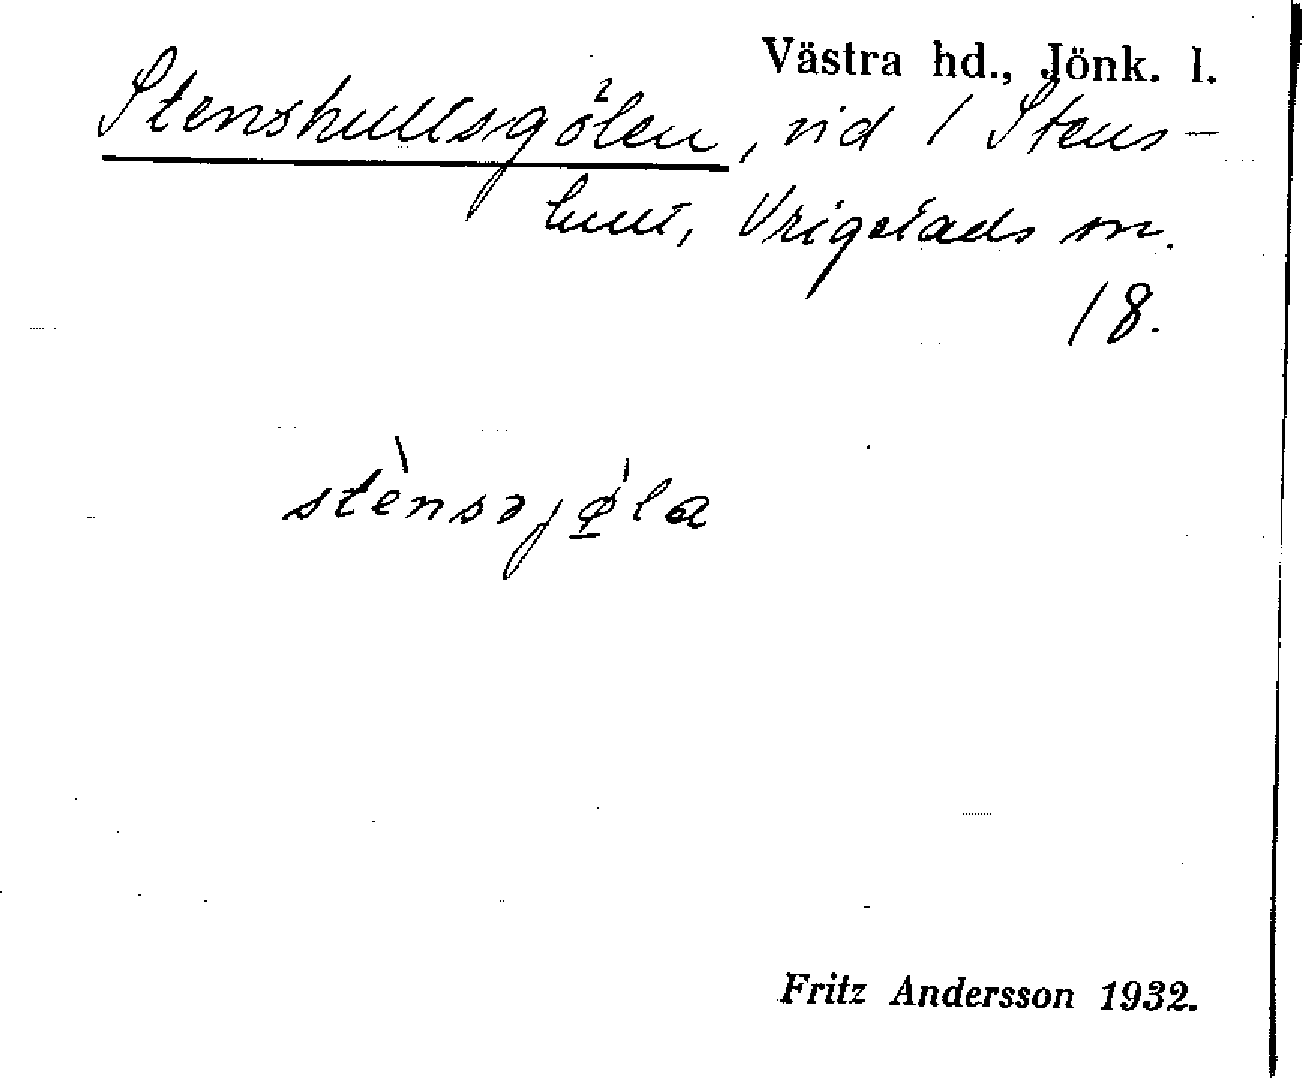 Västra hd., Jönk. l.
Stenshultsgölen, vid 1 Stens-
hult, Vrigstads sn.
18.
stènsəjǿ̲la
Fritz Andersson 1932.